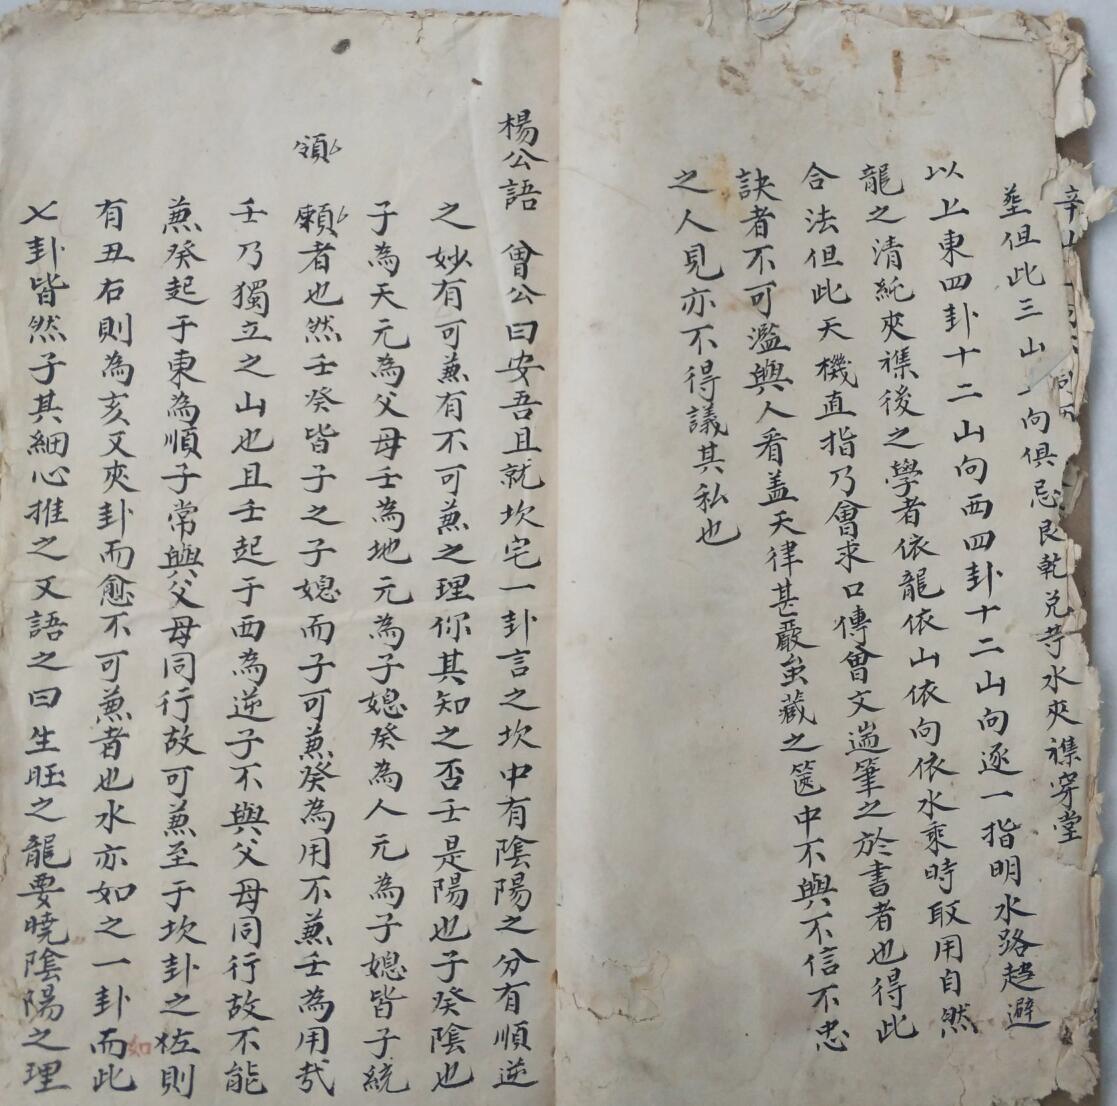 辛山
塟但此三山一向俱忌艮乾兊䒭水夾襍穿堂
以上東四卦十二山向西四卦十二山向逐一指明水路趋避
龍之清純夾襍後之學者依龍依山依向依水乘時取用自然
合法但此天機直指乃曾求口傳曾文遄筆之於書者也得此
訣者不可濫與人看盖天律甚嚴虽藏之篋中不與不信不忠
之人見亦不得議其私也
楊公語 曾公曰安吾且就坎宅一卦言之坎中有陰陽之分有順逆
之妙有可兼有不可兼之理你其知之否壬是陽也子癸陰也
子為天元為父母壬為地元為子媳癸為人元為子媳皆子統
領
賴者也然壬癸皆子之子媳而子可兼癸為用不兼壬為用㢤
壬乃獨立之山也且壬起于西為逆子不與父母同行故不能
兼癸起于東為順子常與父母同行故可兼至于坎卦之左則
有丑右則為亥又夾卦而愈不可兼者也水亦如之一卦而此
如
七卦皆然子其細心推之又語之曰生旺之龍要曉陰陽之理